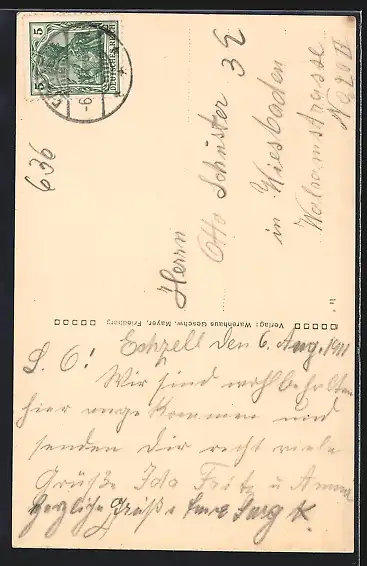 5 5
DEUTSCHES REICH
636
Herrn
Otto Schuster 3 E
in Wiesbaden
Walramstrasse
No 20 II
Verlag: Warenhaus Geschw. Mayer, Friedberg
L. O! Echzell den 6. Aug. 1911
Wir sind wohlbehalten
hier angekommen und
senden Dir recht viele
Grüße Ida Fritz u Anna
herzliche Grüße